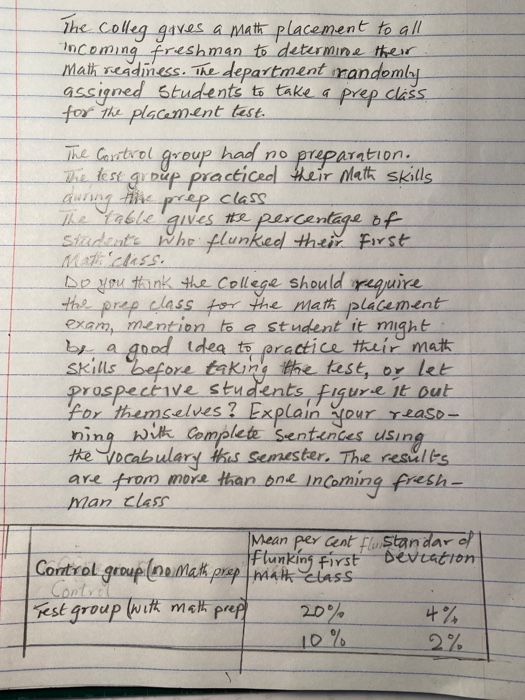 The Colleg gives a Math placement to all
incoming freshman to determine their
Math readiness. The department randomly
assigned students to take a prep class
for the placement test.
The Control group had no preparation.
The test group practiced their Math skills
during the prep class
The table gives the percentage of
Students who flunked their First
Math class.
Do you think the College should require
the prep class for the math placement
exam, mention to a student it might
be a good idea to practice their math
skills before taking the test, or let
prospective students figure it out
for themselves? Explain your reaso-
ning with Complete Sentences using
the vocabulary this semester. The results
are from more than one incoming fresh-
man class
Mean per cent Standar of
flunking first Deviation
Control group (no Math prep math class
Control
Test group (with math prep) 20% 4%
10% 2%